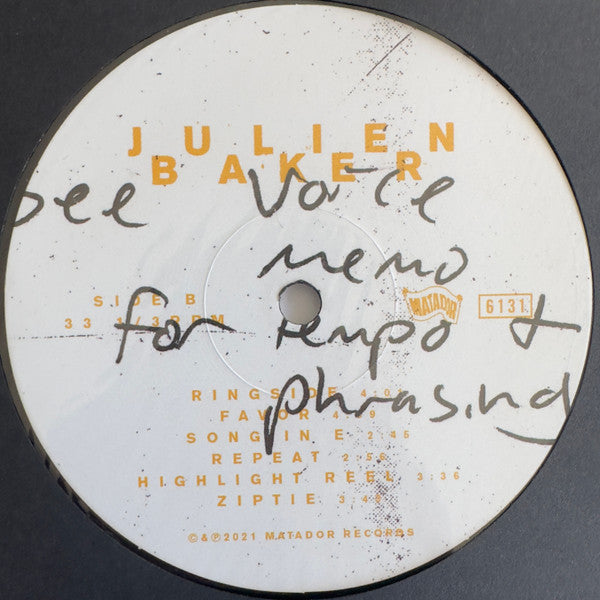 JULIEN
BAKER
see voice
memo
for tempo +
phrasing
SIDE B
33 1/3 RPM
MATADOR
6131.
RINGSIDE
FAVOR
SONG IN E 2:45
REPEAT 2:56
HIGHLIGHT REEL 3:36
ZIPTIE
©&℗2021 MATADOR RECORDS